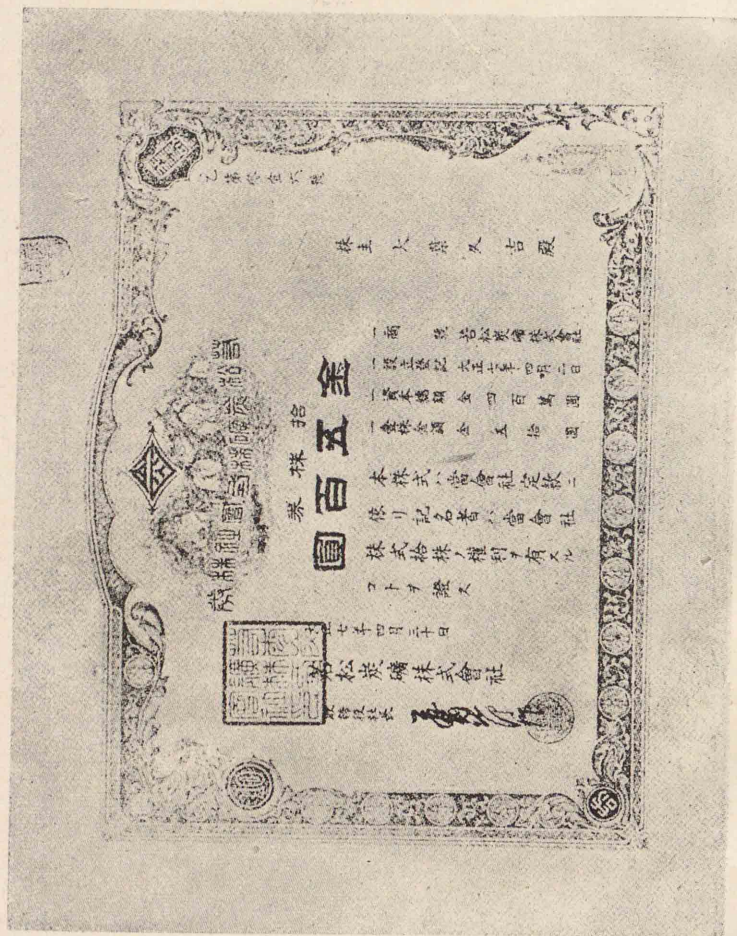 若松炭礦株式會社株券
拾株券
金五百圓
株主 大葉久吉殿
一商號 若松炭礦株式會社
一設立登記 大正七年四月二日
一資本總額 金四百萬圓
一壹株金額 金五拾圓
本株式ハ當會社定款ニ
依リ記名者ハ當會社
株式拾株ノ權利ヲ有スル
コトヲ證ス
大正七年四月三十日
若松炭礦株式會社
取締役社長